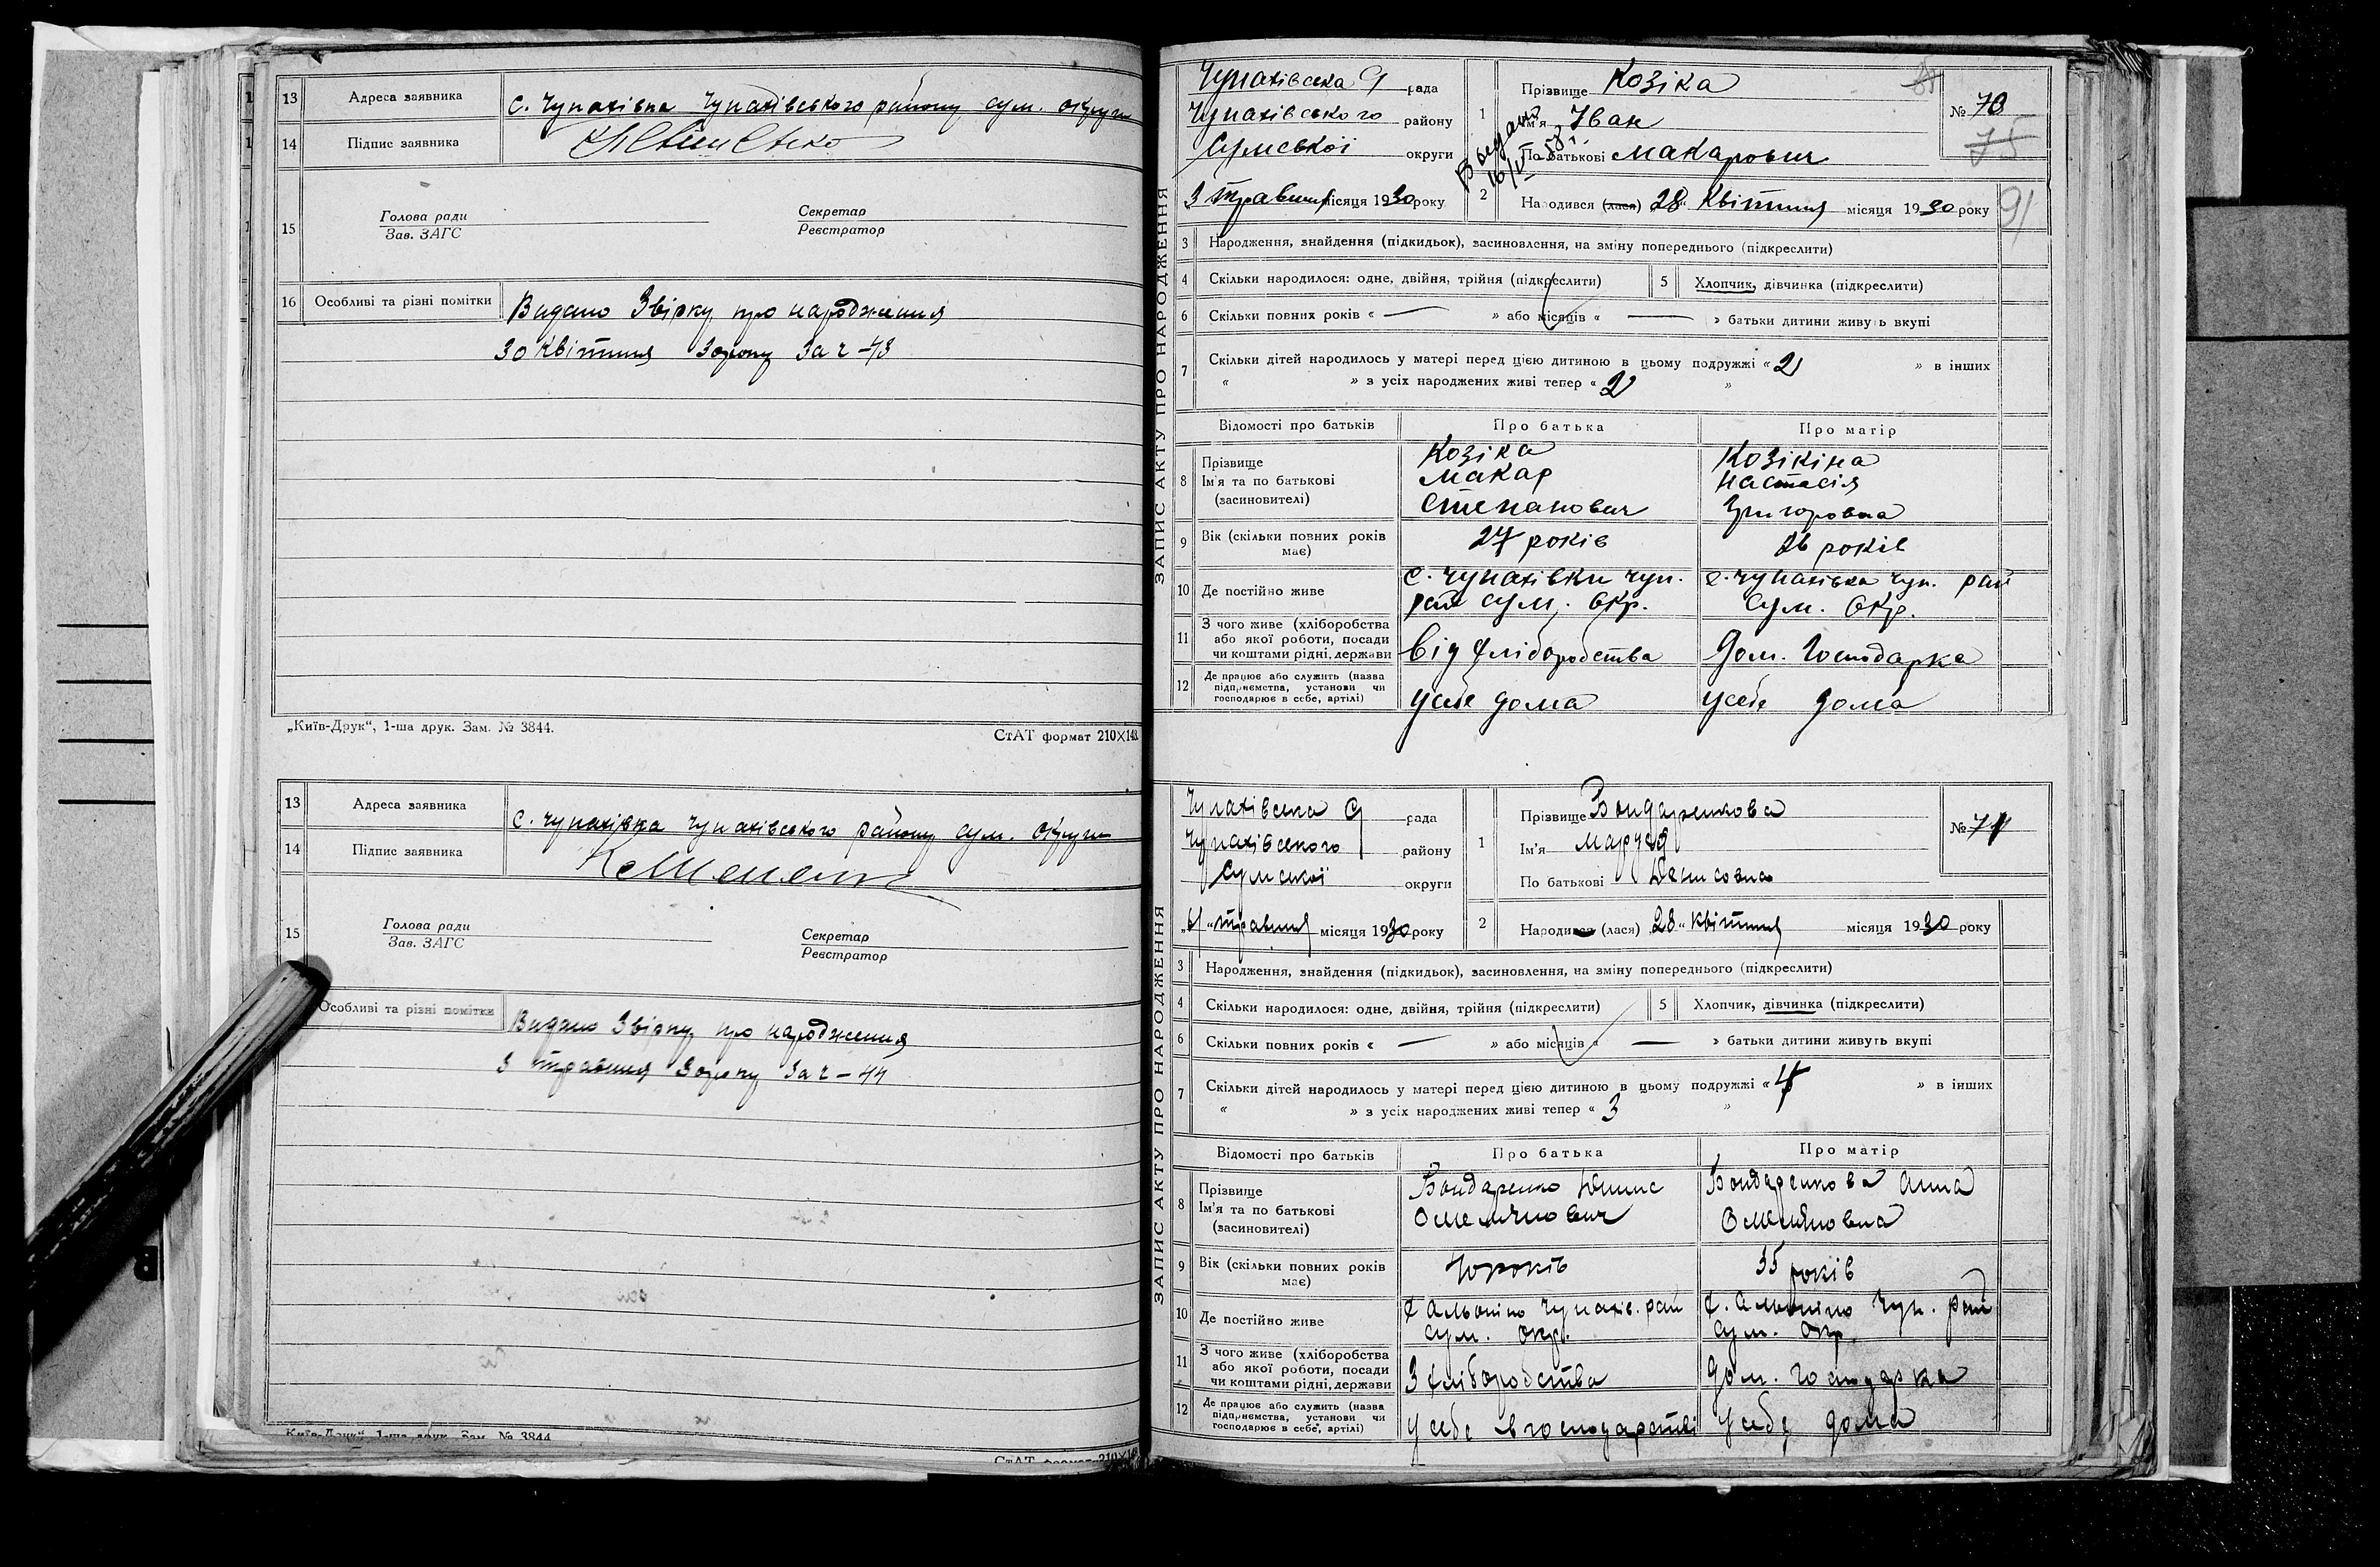 13 Адреса заявника с. Чупахівка Чупахівського району сум. округи
14 Підпис заявника
15 Голова ради
Зав. ЗАГС
Секретар
Реєстратор
16 Особливі та різні помітки Видано Звірку про народження
30 квітня 30 року За ч – 43
„Київ-Друк“, 1-ша друк. Зам. № 3844.
СтАТ формат 210×148
13 Адреса заявника с. Чупахівка Чупахівського району сум. округи
14 Підпис заявника
15 Голова ради
Зав. ЗАГС
Секретар
Реєстратор
Особливі та різні помітки Видано Звірку про народження
3 травня 30 року За ч – 44
Київ-Друк“, 1-ша друк. Зам. № 3844
СтАТ формат 210×148
ЗАПИС АКТУ ПРО НАРОДЖЕННЯ
Чупахівська рада
Чупахівського району
Сумської округи
3 травня місяця 1930 року
1 Прізвище Козіка
Ім'я Іван
По батькові Макарович
№ 73
75
91
2 Народився (лася) „28“ Квітня місяця 1930 року
3 Народження, знайдення (підкидьок), засиновлення, на зміну попереднього (підкреслити)
4 Скільки народилося: одне, двійня, трійня (підкреслити) 5 Хлопчик, дівчинка (підкреслити)
6 Скільки повних років « — » або місяців « — » батьки дитини живуть вкупі
7 Скільки дітей народилось у матері перед цією дитиною в цьому подружжі « 2 » в інших
« » з усіх народжених живі тепер « 2 »
Відомості про батьків Про батька Про матір
8 Прізвище
Ім'я та по батькові
(засиновителі)
Козіка
Макар
Степанович
Козікіна
Настасія
Григоровна
9 Вік (скільки повних років має) 27 років 26 років
10 Де постійно живе
с. Чупахівки Чуп.
рай сум. Окр.
с. Чупахівка Чуп. рай
Сум. Окр.
11 З чого живе (хліборобства
або якої роботи, посади
чи коштами рідні, держави
Від хліборобства
Дом. Господарка
12 Де працює або служить (назва
підприємства, установи чи
господарює в себе, артілі)
У себе дома
У себе дома
ЗАПИС АКТУ ПРО НАРОДЖЕННЯ
Чупахівська рада
Чупахівського району
Сумської округи
травня місяця 1930 року
1 Прізвище Бондаренкова
Ім'я Маруся
По батькові Денисовна
№ 74
2 Народився (лася) „28“ квітня місяця 1930 року
3 Народження, знайдення (підкидьок), засиновлення, на зміну попереднього (підкреслити)
4 Скільки народилося: одне, двійня, трійня (підкреслити) 5 Хлопчик, дівчинка (підкреслити)
6 Скільки повних років « — » або місяців « — » батьки дитини живуть вкупі
7 Скільки дітей народилось у матері перед цією дитиною в цьому подружжі « 4 » в інших
« » з усіх народжених живі тепер « 3 »
Відомості про батьків Про батька Про матір
8 Прізвище
Ім'я та по батькові
(засиновителі)
Бондаренко Денис
Омелянович
Бондаренкова Анна
Омеляновна
9 Вік (скільки повних років має) 40 років 35 років
10 Де постійно живе
х Альоніно Чупахів. рай
сум. окр.
х. Альоніно Чуп. рай
сум. окр.
11 З чого живе (хліборобства
або якої роботи, посади
чи коштами рідні, держави
З хліборобства
Дом. господарка
12 Де працює або служить (назва
підприємства, установи чи
господарює в себе, артілі)
У себе в господарстві
У себе дома